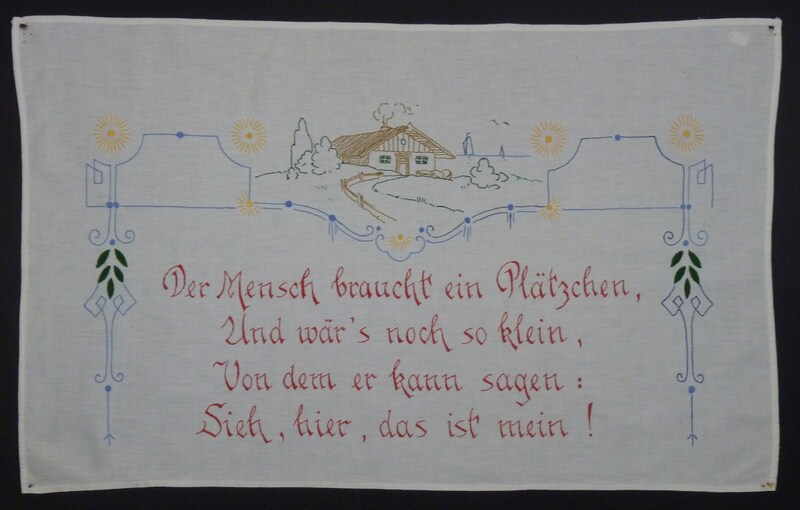 Der Mensch braucht ein Plätzchen,
Und wär's noch so klein,
Von dem er kann sagen:
Sieh, hier, das ist mein!